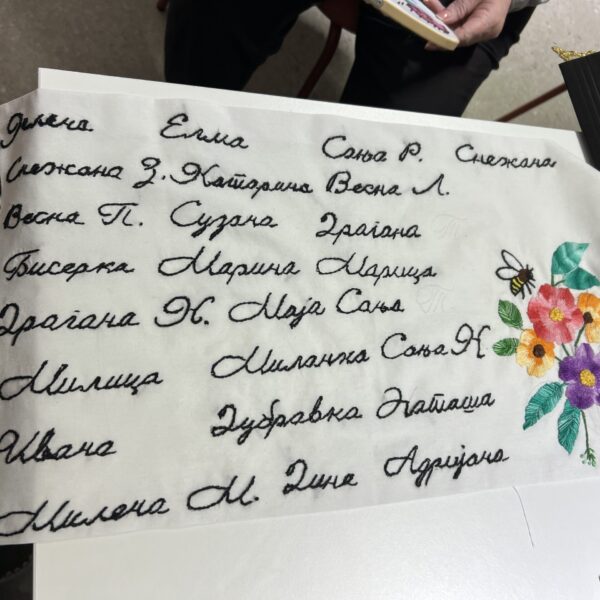 Јелена Елма Сања Р. Снежана
Снежана З. Катарина Весна Л.
Весна П. Сузана Драгана
Бисерка Марина Марица
Драгана К. Маја Сања
Милица Миланка Сања К
Ивана Дубравка Наташа
Милена М. Дина Адријана